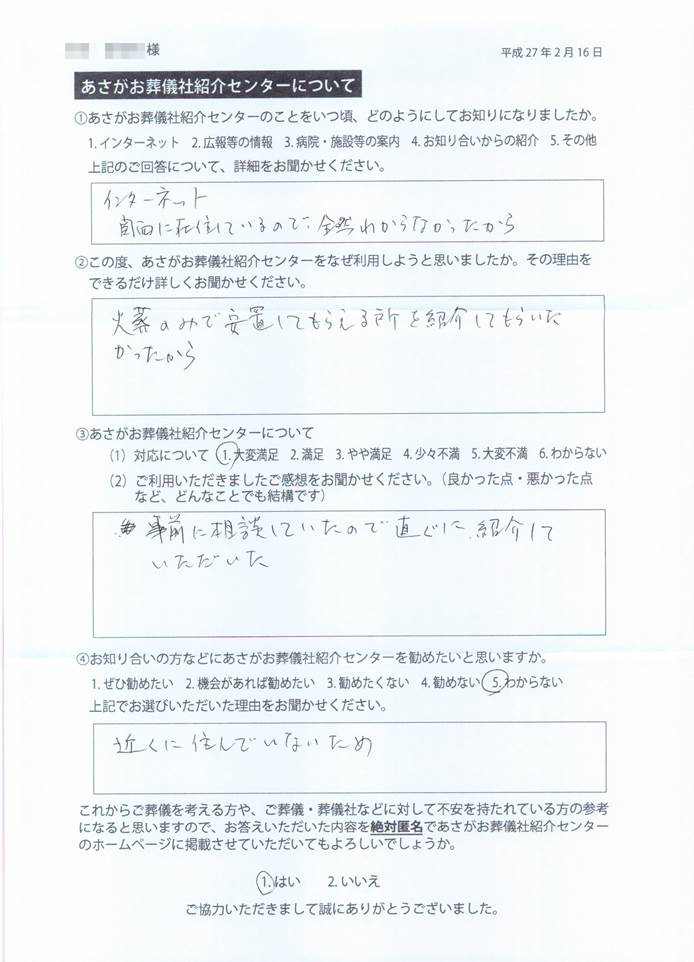 様
平成27年2月16日
あさがお葬儀社紹介センターについて
①あさがお葬儀社紹介センターのことをいつ頃、どのようにしてお知りになりましたか。
1.インターネット 2.広報等の情報 3.病院・施設等の案内 4.お知り合いからの紹介 5.その他
上記のご回答について、詳細をお聞かせください。
インターネット
関西に在住しているので、全然わからなかったから
②この度、あさがお葬儀社紹介センターをなぜ利用しようと思いましたか。その理由を
できるだけ詳しくお聞かせください。
火葬のみで安置してもらえる所を紹介してもらいた
かったから
③あさがお葬儀社紹介センターについて
(1) 対応について 1.大変満足 2.満足 3.やや満足 4.少々不満 5.大変不満 6.わからない
(2) ご利用いただきましたご感想をお聞かせください。(良かった点・悪かった点
など、どんなことでも結構です)
事前に相談していたので直ぐに、紹介して
いただいた
④お知り合いの方などにあさがお葬儀社紹介センターを勧めたいと思いますか。
1.ぜひ勧めたい 2.機会があれば勧めたい 3.勧めたくない 4.勧めない 5.わからない
上記でお選びいただいた理由をお聞かせください。
近くに住んでいないため
これからご葬儀を考える方や、ご葬儀・葬儀社などに対して不安を持たれている方の参考
になると思いますので、お答えいただいた内容を絶対匿名であさがお葬儀社紹介センター
のホームページに掲載させていただいてもよろしいでしょうか。
1.はい 2.いいえ
ご協力いただきまして誠にありがとうございました。